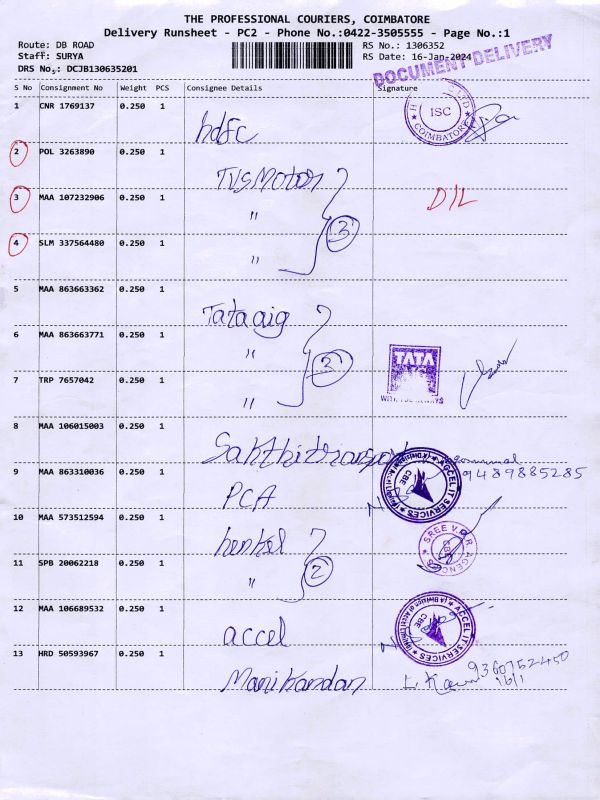 THE PROFESSIONAL COURIERS, COIMBATORE
Delivery Runsheet - PC2 - Phone No.:0422-3505555 - Page No.:1
Route: DB ROAD
RS No.: 1306352
Staff: SURYA
RS Date: 16-Jan-2024
DRS Nos: DCJB130635201
DOCUMENT DELIVERY
S No Consignment No Weight PCS Consignee Details Signature
1 CNR 1769137 0.250 1 hdfc
ISC
COIMBATORE
2 POL 3263890 0.250 1 TVS Motor
3 MAA 107232906 0.250 1 " D/L
3
4 SLM 337564480 0.250 1 "
5 MAA 863663362 0.250 1 Tata aig
6 MAA 863663771 0.250 1 "
3
TATA
7 TRP 7657042 0.250 1 "
8 MAA 106015003 0.250 1 Sakthi
9489885285
9 MAA 863310036 0.250 1 PCA
ACCEL IT SERVICES
CBE
10 MAA 573512594 0.250 1 henkel
SREE
CBE
11 SPB 20062218 0.250 1 "
2
12 MAA 106689532 0.250 1 accel
ACCEL IT SERVICES
CBE
13 HRD 50593967 0.250 1 Manikandan
9360752450
16/1